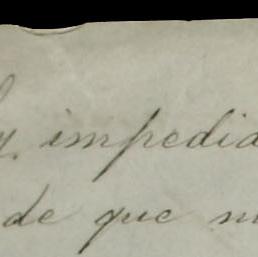 y impedid
de que